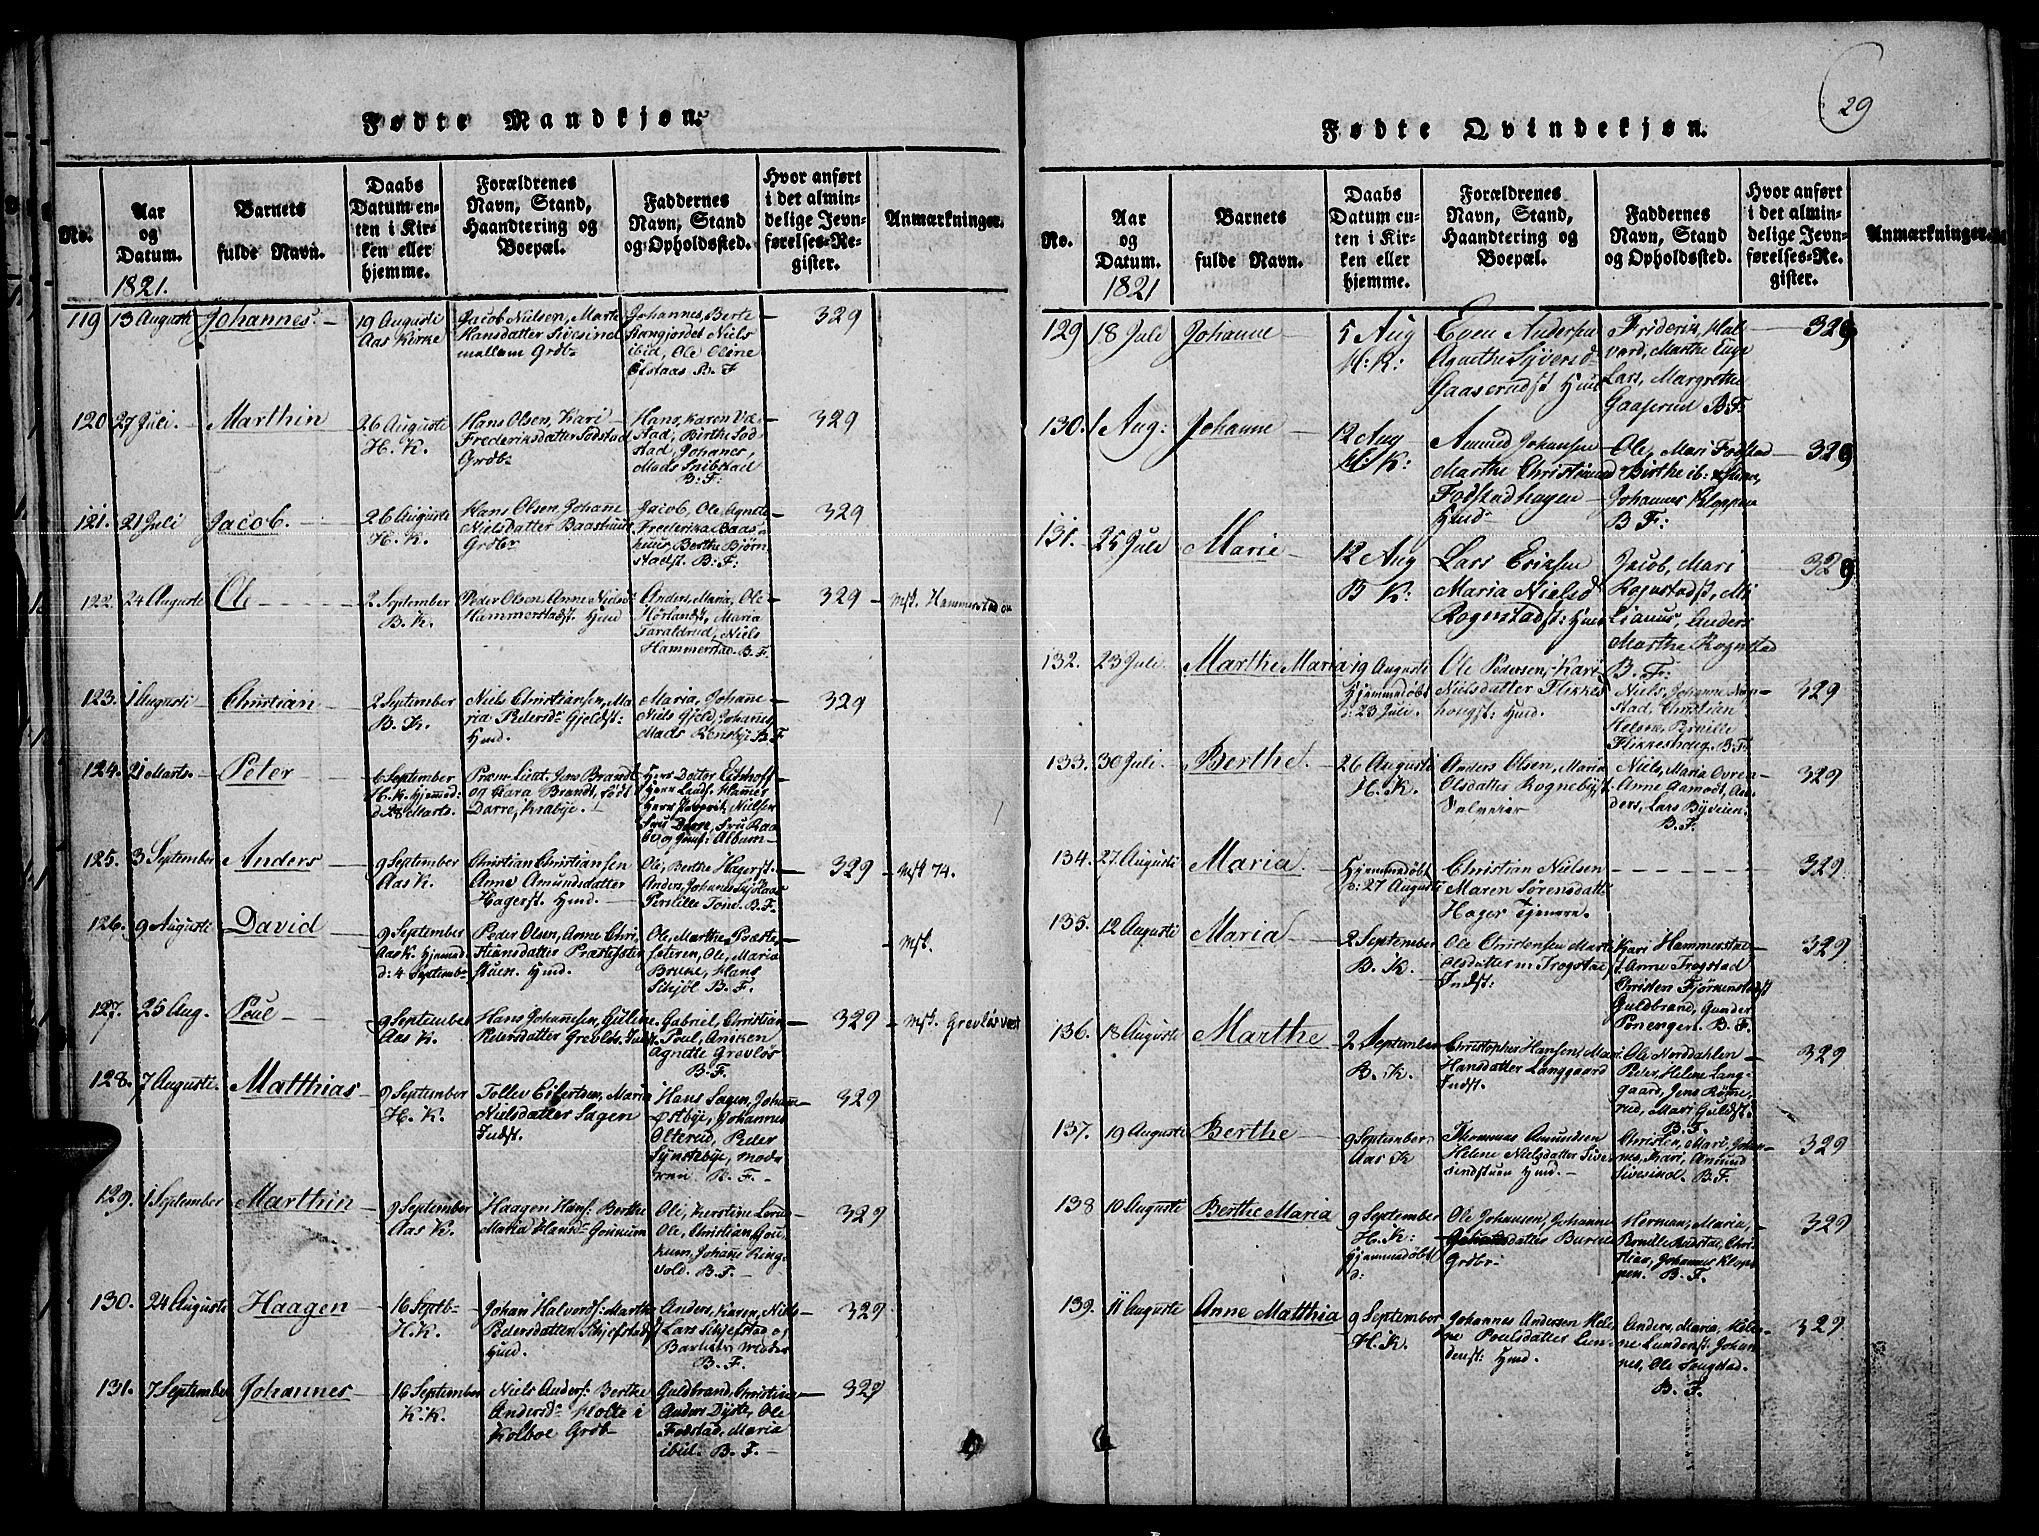 29
Fødte Mandkjøn.
No.
Aar
og
Datum.
1821.
Barnets
fulde Navn.
Daabs
Datum en-
ten i Kir-
ken eller
hjemme.
Forældrenes
Navn, Stand,
Haandtering og
Boepæl.
Faddernes
Navn, Stand
og Opholdssted.
Hvor anført
i det almin-
delige Jevn-
førelses-Re-
gister.
Anmærkninger.
119
13 Augusti
Johannes.
19 Augusti
Aas Kirke
Jacob Nielsen, Marte
Hansdatter Sivesind
mellem Grdb.
Johannes, Berte
Stangjordet Niels
ibid, Ole Oline
B. F
329
120
27 Juli.
Marthin
26 Augusti
H. K.
Hans Olsen, Kari
Frederiksdatter Sodstad
Grdb.
Hans, Karen
stad, Birthe Sod
stad, Johanes,
Mads
B: F:
329
121.
21 Juli
Jacob.
26 Augusti
H. K.
Hans Olsen, Johane
Nielsdatter Baashuus
Grdbr
Jacob, Ole Agnete
Frederika Baas-
huus, Berthe Bjørn
stadst. B: F:
329
122.
24 Augusti
Ole
2 September
B. K.
Peder Olsen, Anne Nielsd:
Hammerstadst. Hmd
Anders, Maria, Ole
Maria
Taraldrud, Niels
Hammerstad. B. F.
329
Mst. Hammerstad
123.
1 Augusti
Christian
2 September
B. K.
Niels Christiansen, Ma
ria Pedersdr Gjeldst:
Hmd.
Maria, Johane
Niels Gjeld Johanes
Mads B F
329
124.
21 Marts.
Peter
6 September
H. K. Hjemmed:
d 28 Marts.
Prem Lieut. Jens Brandt
og Sara Brandt, født
Darre, Krabye.
Herr Docter Eichhoff
Herr Hammer
Herr Nielsen
Fru Darre, Fru
og Album
125.
3 September
Anders
9 September
Aas K.
Christian Christiansen
Anne Amundsdatter
Hagerst. Hmd.
Ole, Berthe Hagerst.
Anders, Johanes
Pernille Tone. B. F.
329
Mst 74.
126.
9 Augusti
David
9 September
Aas K. Hjemmed
d: 4 Septembr
Peder Olsen, Anne Chri,
stiansdatter Præstesæter
stuen. Hmd.
Ole, Marthe Præste,
sæteren, Ole, Maria
Hans
B. F.
Mst.
127.
25 Aug.
Poul
9 September
Aas K.
Hans Johannesen, Guline
Pedersdatter Grevløs. Indst.
Gabriel, Christian
Poul, Anniken
Agnette Grevløs
B. F.
329
Mst. Grevløs vest
128.
7 Augusti.
Matthias
9 September
H. K.
Tollev Eilertsen, Maria
Nielsdatter Sagen
Indst.
Hans Sagen, Johane
Østbye, Johannes
Alterud, Peder
B. F.
329
129.
1 September
Marthin
9 September
Aas K.
Haagen Hans: Berthe
Maria Hansdr
Ole, Kerstine
Ole, Christian
Johane Ring,
vold. B. F.
329
130.
24 Augusti
Haagen
16 Septb
H. K.
Johan Halvords: Marthe
Pedersdatter Schjefstadst
Hmd.
Anders, Karen, Niels
Lars Schjefstad og
B. F.
329
131.
7 September
Johannes
16 September
K. K.
Niels Anders: Berthe
Andersdr Holte i
Kolboe Grdb
Guldbrand, Christine
Anders Dyste, Ole
Fodstad, Maria
ibid. B. F.
329
Fødte Qvindekjøn.
No.
Aar
og
Datum.
1821
Barnets
fulde Navn.
Daabs
Datum en-
ten i Kir-
ken eller
hjemme.
Forældrenes
Navn, Stand,
Haandtering og
Boepæl.
Faddernes
Navn, Stand
og Opholdssted.
Hvor anført
i det almin-
delige Jevn-
førelses-Re-
gister.
Anmærkninger.
129
18 Juli
Johanne
5 Aug
H: K:
Even Andersen
Agnethe Syversd
Gaaserudst Hmd
Friderik, Hal
vard, Marthe Enge
Lars, Margrethe
Gaaserud B: F:
329
130.
1 Aug:
Johanne
12 Aug
H: K:
Amund Johansen
Marthe Christiansd
Fodstadhagen
Hmd
Ole, Mari Fodstad
Birthe ib:
Johannes Kloppen
B F:
329
131.
25 Juli
Marie
12 Aug
B K:
Lars Eriksen
Maria Nielsd
Rognstadst: Hmd
Jacob, Mari
Rognstadst, Mi
lianus, Anders
Marthe Rognstad
B. F:
329
132.
23 Juli.
Marthe Maria
19 Augusti
Hjemmedøbt
d: 23 Juli.
Ole Pedersen, Kari
Nielsdatter Flikkes
hougst: Hmd.
Niels, Johanne
stad, Christian
Helene, Pernille
Flikkeshoug. B. F.
329
133.
30 Juli.
Berthe.
26 Augusti
H. K.
Anders Olsen, Maria
Olsdatter Rognebyst
Niels, Maria
Anne Aamodt, An
ders, Lars Byveien.
B. F.
329
134.
27 Augusti
Maria.
Hjemmedøbt
d: 27 Augusti
Christian Nielsen
Maren Sørensdatt:
Hager Tjenere.
329
135.
12 Augusti
Maria
2 September
B. K.
Ole Christensen Marte
Olsdatter Frogstad
Indst:
Kari Hammersta
Anne Frogstad
Christen
Guldbrand, Gunder
B. F.
329
136.
18 Augusti
Marthe
2 September
B. K.
Christopher Hansen, Mari
Hansdatter Langgaard
Indst.
Ole Norddahlen
Peder, Helene Lang-
gaard, Jens Røsne,
rud, Mari Guldst.
B. F.
329
137.
19 Augusti
Berthe
9 September.
Aas K
Thommas Amundsen
Helene Nielsdatter Sive,
sindstuen Hmd.
Christen, Mari, Johan-
nes, Kari, Amund
Sivesind. B. F.
329
138
10 Augusti
Berthe Maria
9 September
H. K:
Hjemmedøbt
d:
Ole Johansen, Johanne
datter
Grdbr
Herman, Maria,
Pernille Chris
tian, Johannes Klop
pen. B. F.
329
139.
11 Augusti
Anne Matthia
9 September
H. K.
Johannes Andersen Hele
ne Poulsdatter Lun
denst: Hmd.
Anders, Maria, Hele-
ne Lundenst: Johan
nes, Ole
B. F.
329